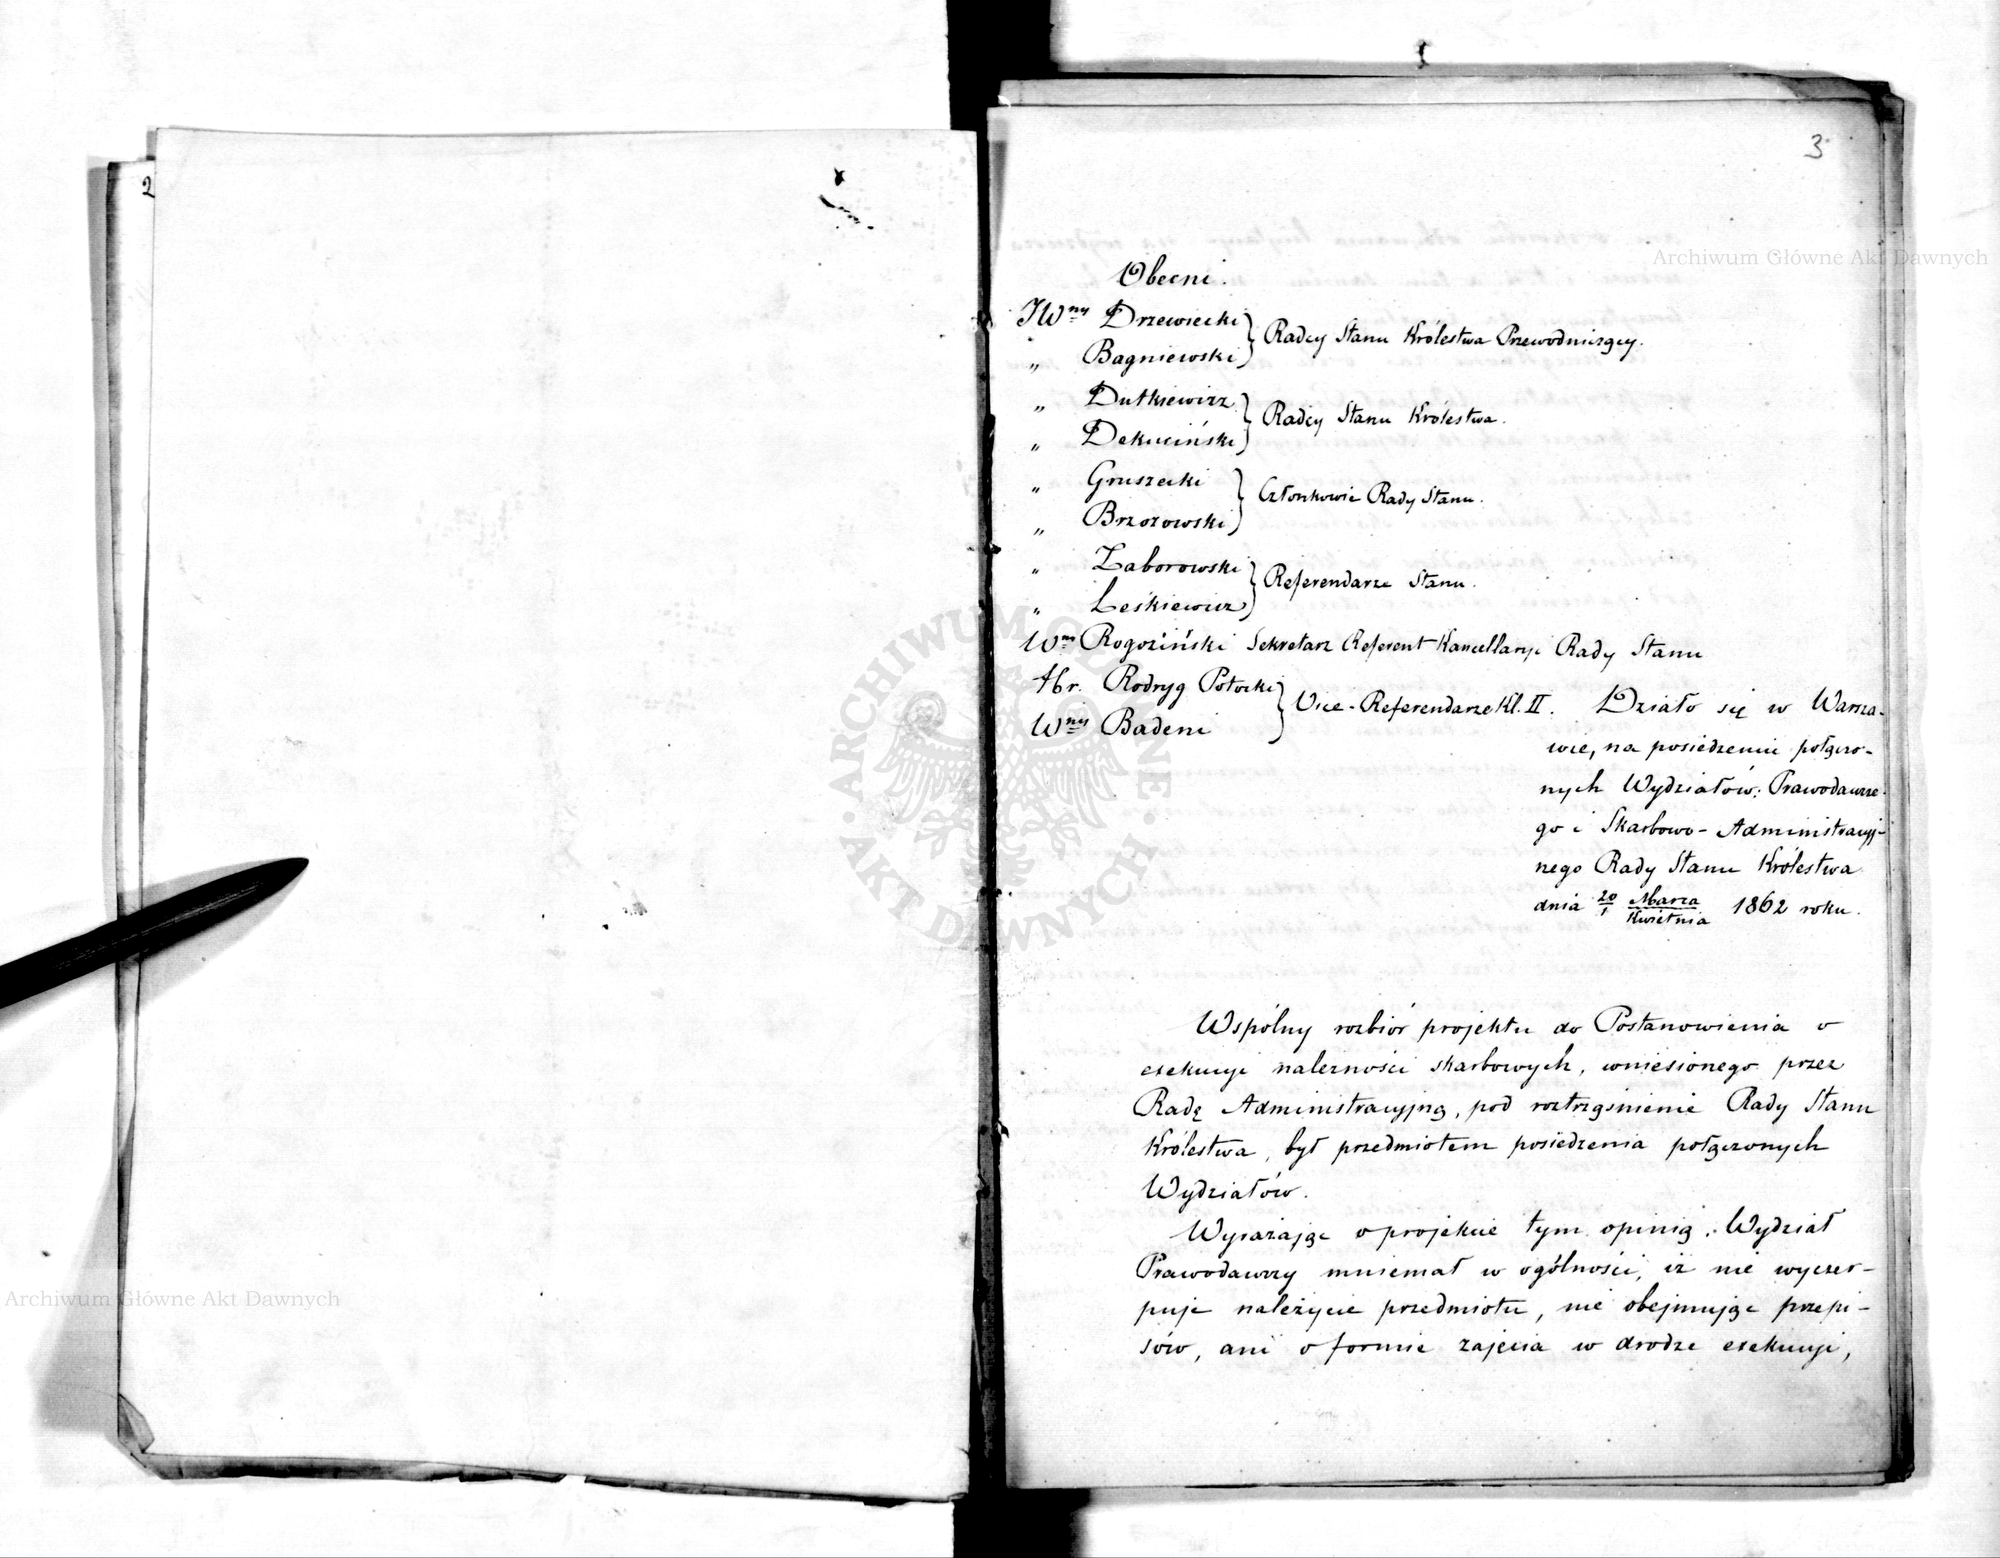 2
3
Obecni.
JW^ny Drzewiecki
„ Bagniewski
Radcy Stanu Królestwa Przewodniczący.
„ Dutkiewicz
„ Dekuciński
Radcy Stanu Królestwa.
„ Gruszecki
„ Brzozowski
Członkowie Rady Stanu.
„ Zaborowski
„ Leśkiewicz
Referendarze Stanu.
W^ny Rogoziński Sekretarz Referent Kancellaryi Rady Stanu
Hr. Rodryg Potocki
W^ny Badeni
Vice-Referendarze Kl. II.
Działo się w Warsza-
wie, na posiedzeniu połączo-
nych Wydziałów: Prawodawcze-
go i Skarbowo-Administracyj-
nego Rady Stanu Królestwa
dnia 20/1 Marca/Kwietnia 1862 roku.
Wspólny rozbiór projektu do Postanowienia o
exekucyi należności skarbowych, wniesionego przez
Radę Administracyjną, pod roztrząśnienie Rady Stanu
Królestwa, był przedmiotem posiedzenia połączonych
Wydziałów.
Wyrażając o projekcie tym opinią, Wydział
Prawodawczy mniemał w ogólności, iż nie wyczer-
puje należycie przedmiotu, nie obejmując przepi-
sów, ani o formie zajęcia w drodze exekucyi,
Archiwum Główne Akt Dawnych
Archiwum Główne Akt Dawnych
ARCHIWUM GŁÓWNE AKT DAWNYCH